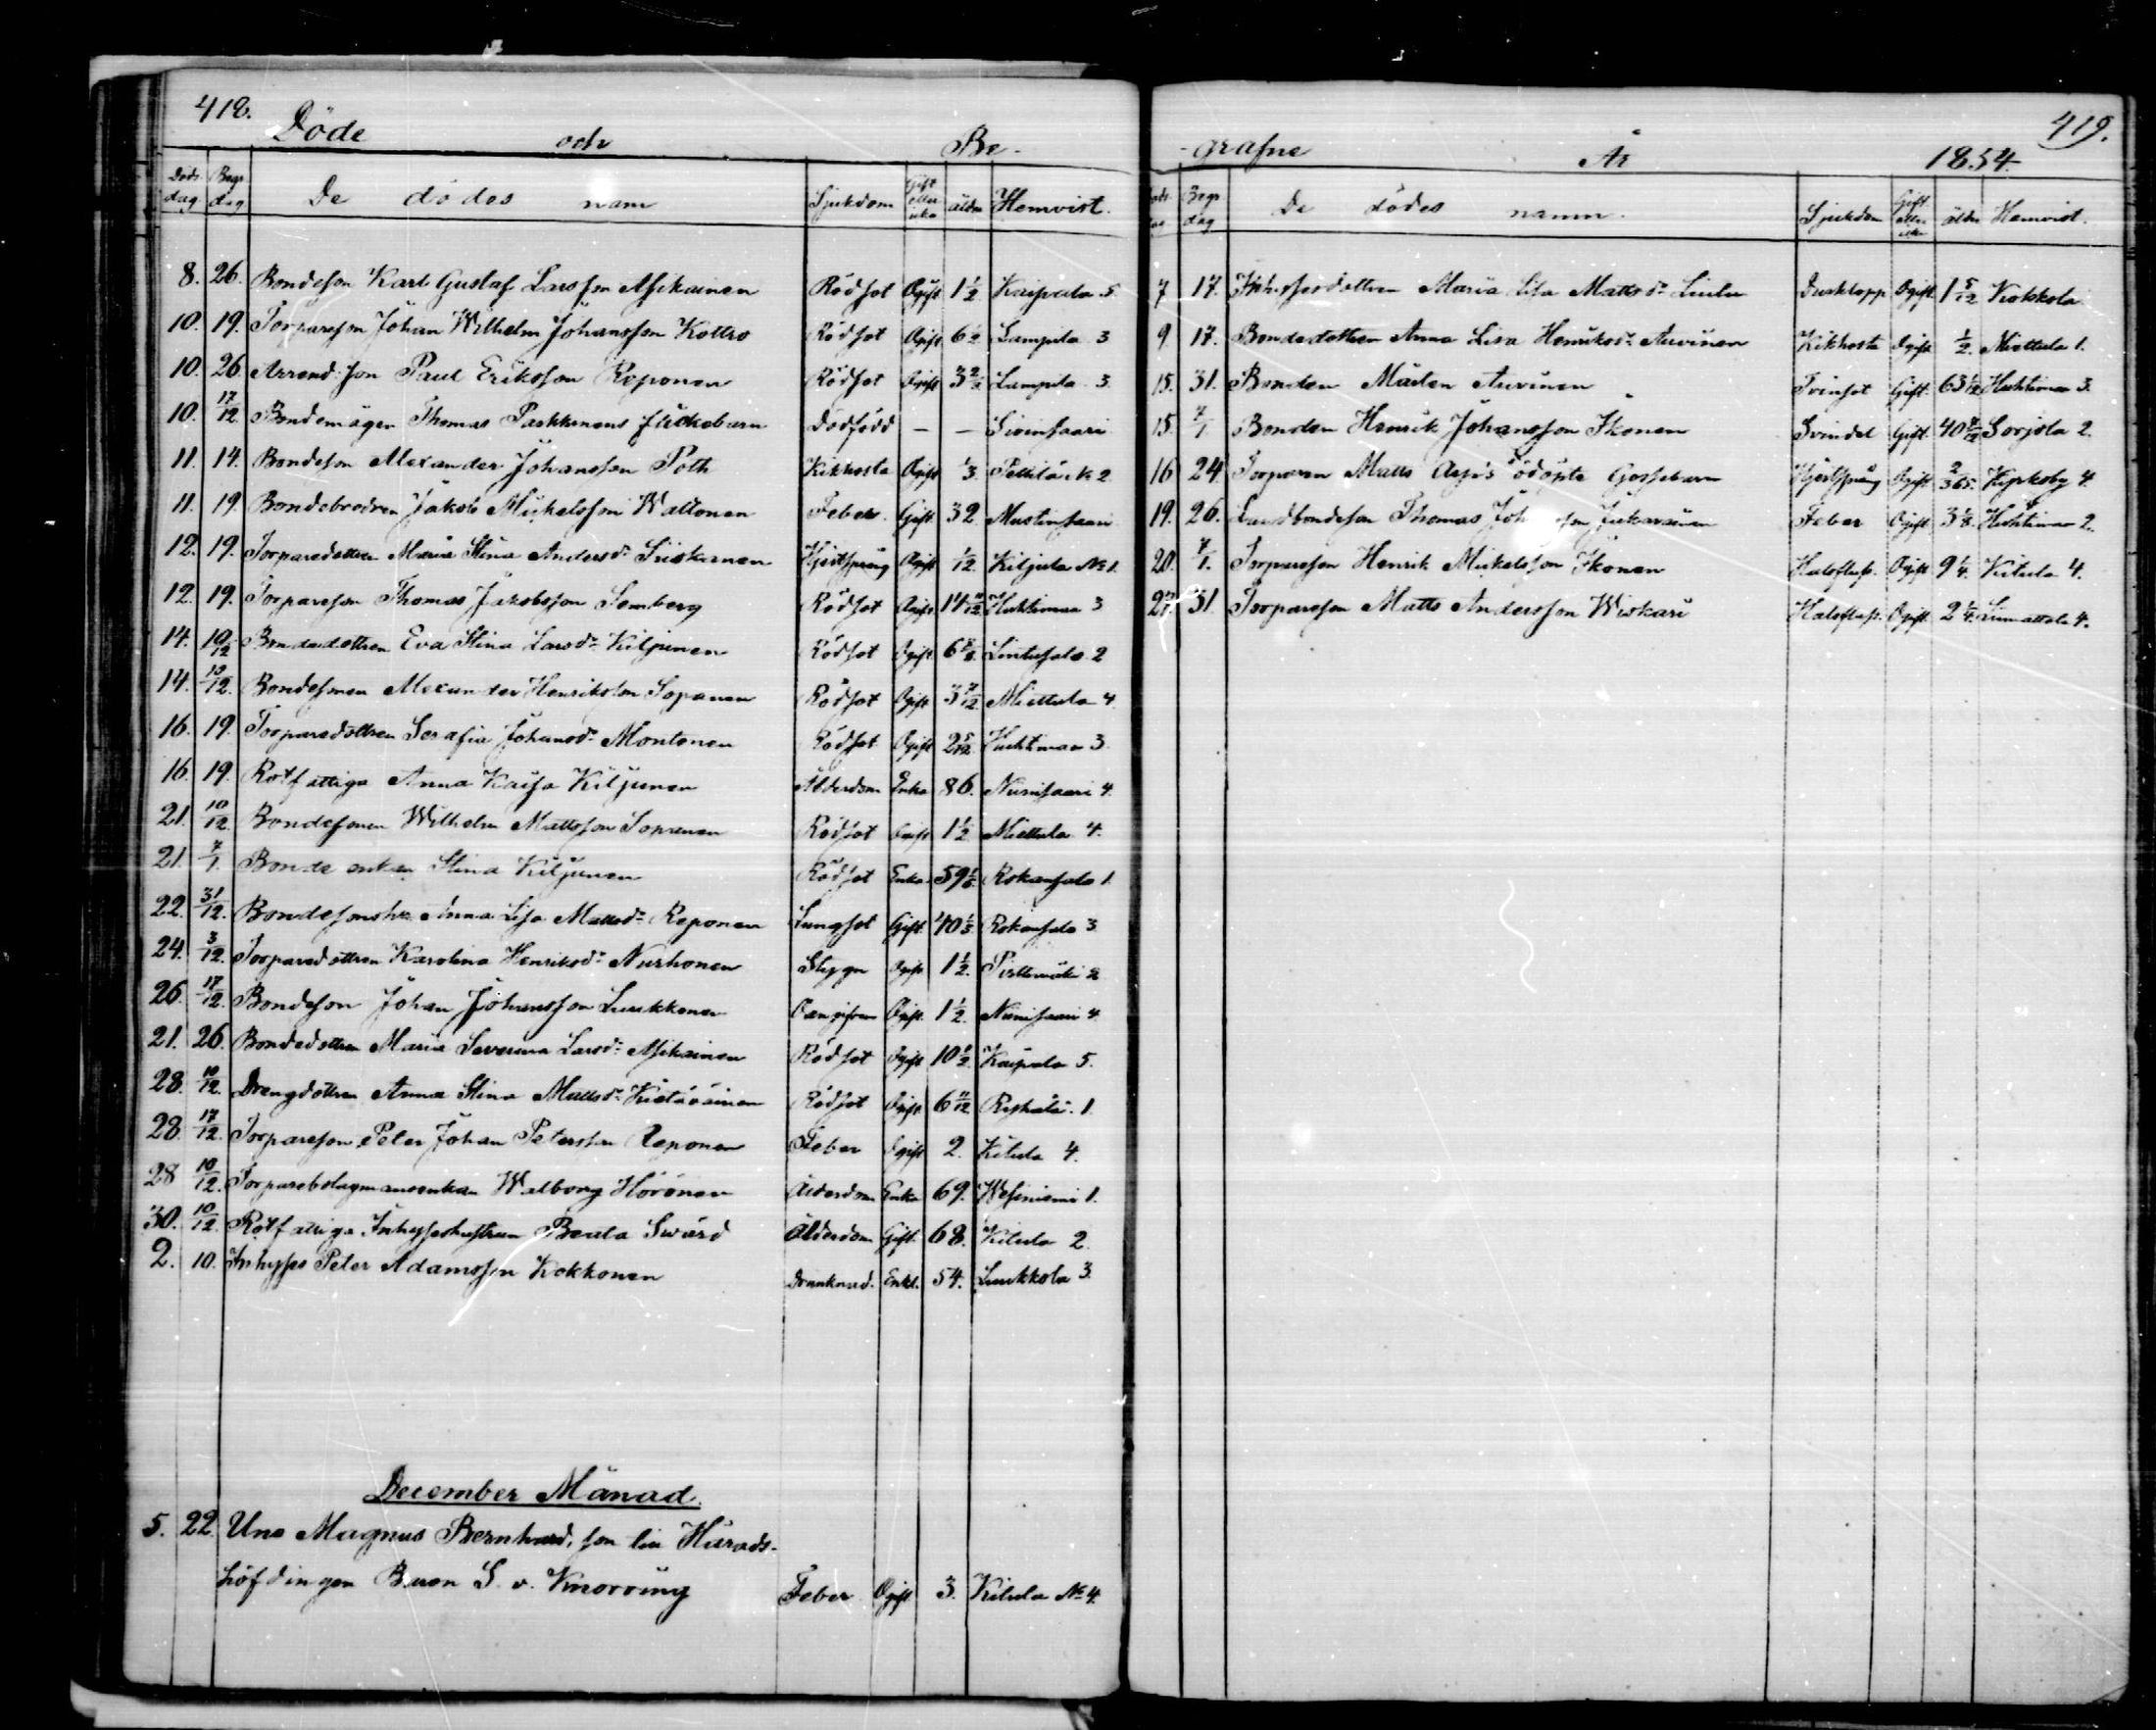 418.
Döde och Be-
Döds dag Begr dag De dödes namn Sjukdom Gift eller icke ålder Hemvist.
8. 26. Bondeson Karl Gustaf Larsson Asikainen Rödsot Ogift 1 1/2 Kaipala 5
10. 19. Torpareson Johan Wilhelm Johansson Kottro Rödsot Ogift 6 1/2 Lampila 3
10. 26 Arrend: son Paul Eriksson Reponen Rödsot Ogift Lampila 3.
10. 17/12 Bondemågen Thomas Parkkinens flickebarn Dödfödd — — Sivinsaari
11. 14. Bondeson Alexander Johansson Poth Kikhosta Ogift 1/3. 2
11. 19. Bondebrodren Jakob Mickelsson Waltonen Feber Gift 32. Mustinsaari
12. 19. Torparedottren Maria Stina Andersdr Siiskonen Hjertsprång Ogift 1/12. Kiljula No 1.
12. 19. Torpareson Thomas Jakobsson Semberg Rödsot Ogift Huhtimaa 3
14. 19/12 Bondedottren Eva Stina Larsdr Kiljunen Rödsot Ogift Lintusalo 2
14. 10/12. Bondesonen Alexander Henriksson Sopanen Rödsot Ogift 3 7/12. Miettula 4
16. 19. Torparedottren Serafia Johansdr Montonen Rödsot Ogift 2 5/12. Huhtimaa 3.
16. 19. Rotfattiga Anna Kaisa Kiljunen Ålderdom Enka 86. Niinisaari 4.
21. 10/12. Bondesonen Wilhelm Mattsson Sopanen Rödsot Ogift 1 1/2 Miettula 4.
21. 7/1. Bonde enkan Stina Kiljunen Rödsot Enka 59 Rokansalo 1.
22. 31/12. Bondesonshu Anna Lisa Mattsdr Reponen Lungsot Gift 40 1/3 Rokansalo 3
24. 3/12. Torparedottren Karolina Henriksdr Nurhonen Slaggn Ogift 1 1/2. 2
26. 17/12. Bondeson Johan Johansson Luukkonen Oangifven Ogift. 1 1/2. Niinisaari 4
21. 26. Bondedottren Maria Severina Larsdr Asikainen Rödsot Ogift 10 1/2 Kaipala 5.
28. 10/12. Drengdottren Anna Stina Mattsdr Kietäväinen Rödsot Ogift 6 11/12 Rephälä. 1.
28. 17/12. Torpareson Peter Johan Petersson Reponen Feber Ogift 2. Kitula 4.
28 10/12. Torparebolagmansenkan Walborg Hörönen Ålderdom Enka 69. Wesiniemi 1.
30. 10/12. Rotfattiga Inhyseshustrun Beata Swärd Ålderdom Gift 68. Kitula 2.
2. 10. Inhyses Peter Adamsson Kokkonen Drunknad. Enkl. 54. Luukkola 3.
December Månad.
5. 22. Uno Magnus Bernhard, son till Härads-
höfdingen Baron S. v. Knorring Feber Ogift 3. Kitula No 4.
419.
-grafne År 1854.
Begr dag De dödes namn. Sjukdom Gift eller icke ålder Hemvist.
7 17. Inhysesdottren Maria Lisa Mattsdr Liulu Ogift. 1 5/12 Kokkola
9 17. Bondedottren Anna Lisa Henriksdr Auvinen Kikhosta Ogift 1/2. Miettula 1.
15. 31. Bonden Mårten Auvinen Tvinsot Gift. Huhtimaa 3.
15. 7/1. Bonden Henrik Johansson Ikonen Svindel Gift. Sorjola 2.
16 24. Torparen Matts Aejis odöpta Gossebarn Hjertsprång Ogift 2/365. Kyrkoby 4.
19. 26. Lundbondeson Thomas Joh son Jukarainen Feber Ogift 3 1/8. Huhtimaa 2.
20. 7/1. Torpareson Henrik Mickelsson Ikonen Halsfluss. Ogift 9 1/4. Kitula 4.
27 31. Torpareson Matts Andersson Wiskari Halsfluss. Ogift. 2 1/4. Liimattala 4.